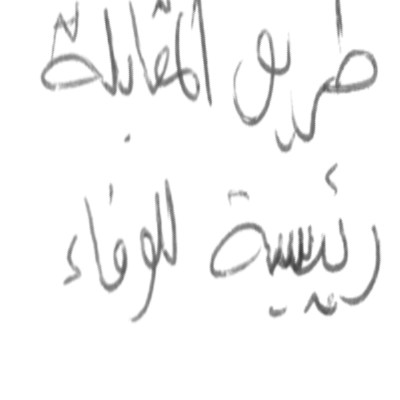 طريق المقابلة
رئيسية للوفاء